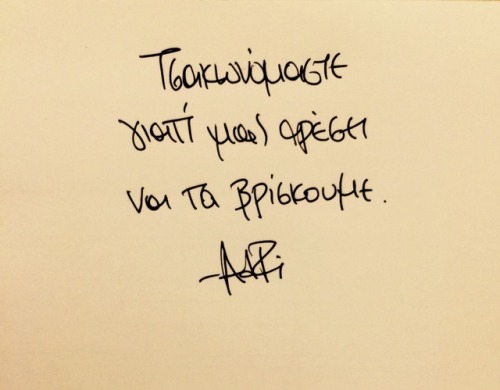 Τσακωνόμαστε
γιατί μας αρέσει
να τα βρίσκουμε.